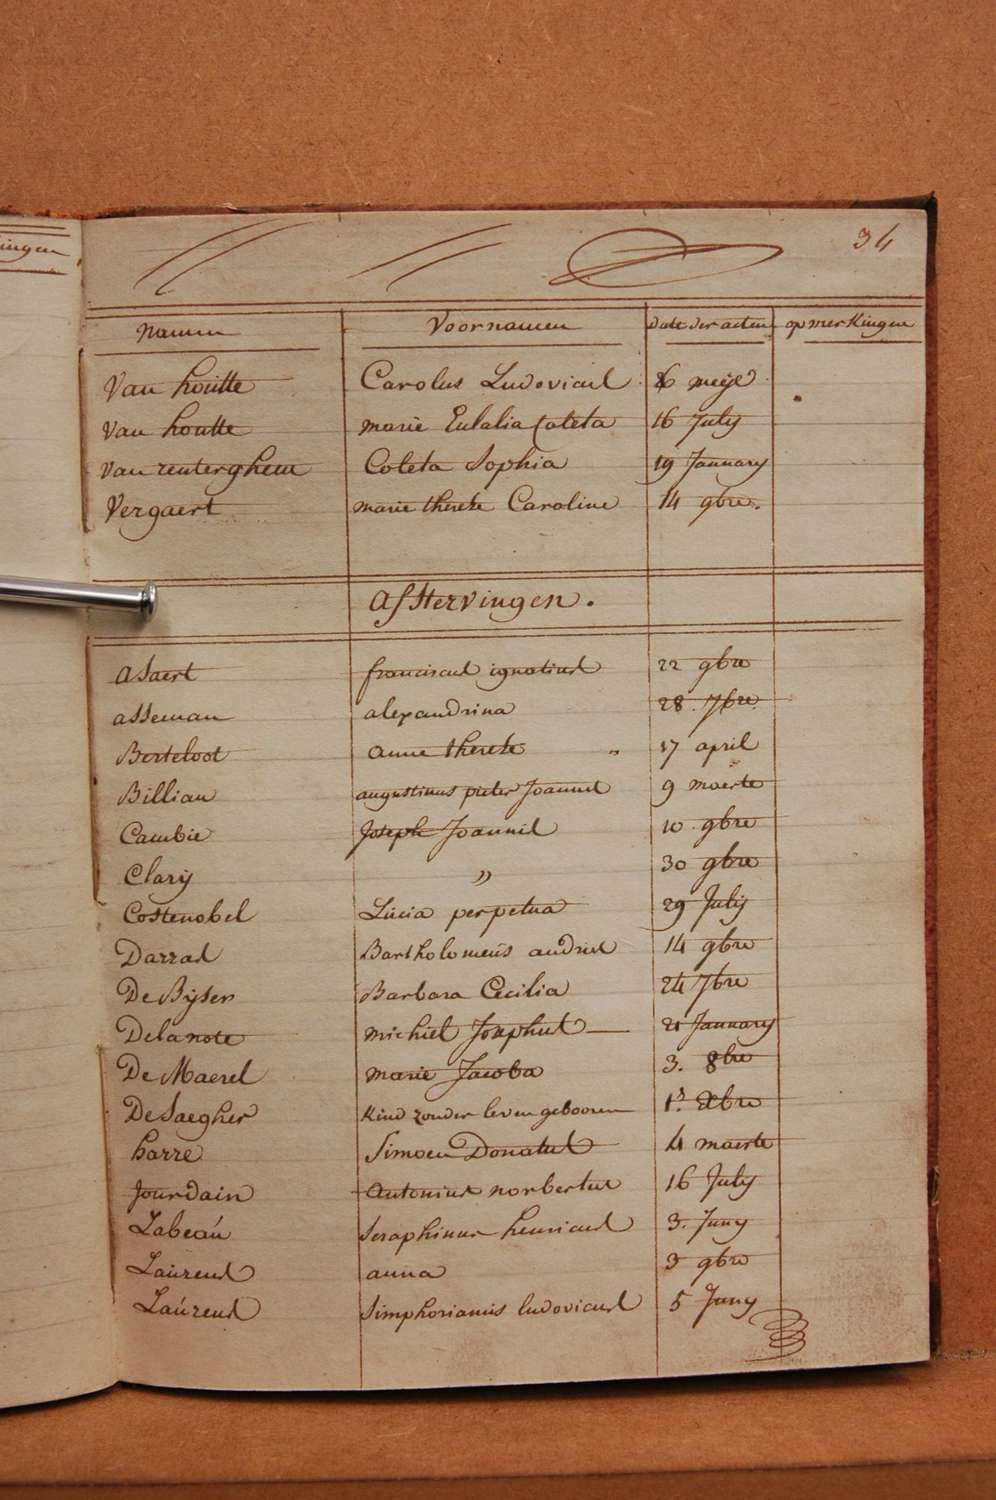 ingen
34
Namen Voornamen Date der acten opmerkingen
Van houtte Carolus Ludovicus 6 meije
Van houtte marie Eulalia Coleta 16 July
Van renterghem Coleta Sophia 19 January
Vergaert marie therese Caroline 14 9bre.
Afstervingen.
Asaert franciscus ignatius 22 9bre
asseman alexandrina 28. 7bre.
Berteloot anne therese " 17 april
Billiau augustinus pieter Joannes 9 maerte
Cambie Joseph Joannes 10 9bre
Clarÿ " 30 9bre
Costenobel Lúcia perpetua 29 July
Darras Bartholomeús andries 14 9bre
De Bÿser Barbara Cecilia 24 7bre
Delanote michiel Josephus 21 January
De Maerel marie Jacoba 3. 8bre
De Saegher Kind zonder leven gebooren 1r. Xbre
harre Simoen Donatus 4 maerte
Jourdain Antonius norbertus 16 July
Labeaú Seraphinus henricus 3. Juny
Laúrens anna 3 9bre
Laúrens Simphorianus ludovicus 5 Juny